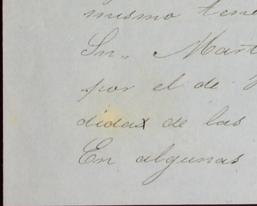 mismo tene
Sn. Mart
por el de
didas de las
En algunas